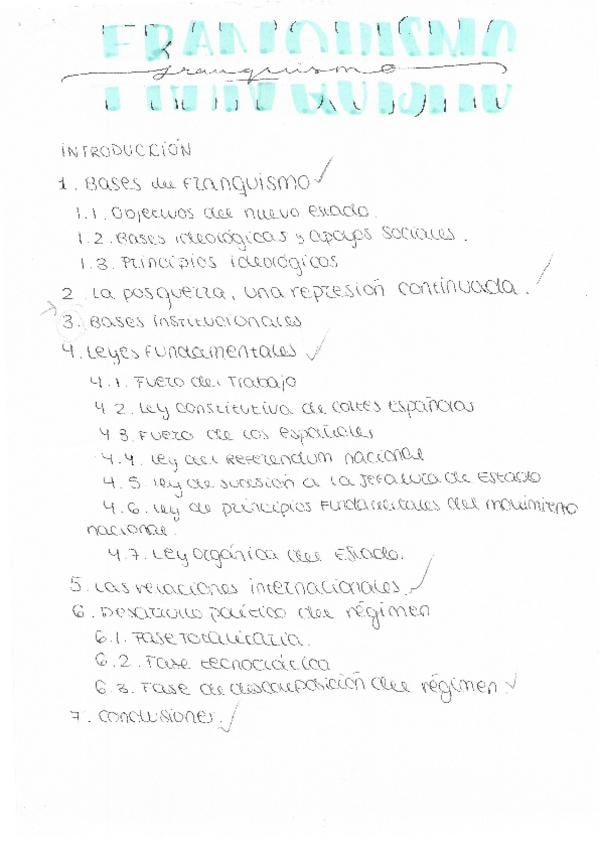 FRANQUISMO
franquismo
INTRODUCCIÓN
1. Bases du Franquismo ✓
1.1. Objectivos del nuevo estado.
1.2. Bases ideológicas y apoyos sociales.
1.3. Principios ideológicos
2. La posguerra, una represión continuada. ✓
→ 3. Bases institucionales
4. Leyes Fundamentales ✓
4.1. Fuero del Trabajo
4.2. Ley constitutiva de cortes Españolas
4.3. Fuero de los españoles
4.4. Ley del Referendum nacional
4.5. Ley de sucesión a la Jefatura de Estado
4.6. Ley de principios Fundamentales del movimiento
nacional.
4.7. Ley orgánica del Estado.
5. Las relaciones internacionales. ✓
6. Desarrollo político del régimen
6.1. Fase Totalitaria.
6.2. Fase tecnocrática
6.3. Fase de descomposición del régimen ✓
7. Conclusiones. ✓